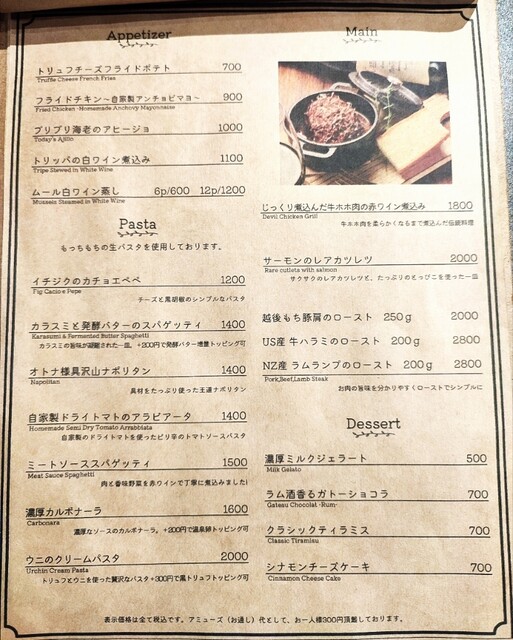 Appetizer
トリュフチーズフライドポテト 700
Truffle Cheese French Fries
フライドチキン〜自家製アンチョビマヨ〜 900
Fried Chicken -Homemade Anchovy Mayonnaise
プリプリ海老のアヒージョ 1000
Today's Ajillo
トリッパの白ワイン煮込み 1100
Tripe Stewed in White Wine
ムール白ワイン蒸し 6p/600 12p/1200
Mussels Steamed in White Wine
Pasta
もっちもちの生パスタを使用しております。
イチジクのカチョエペペ 1200
Fig Cacio e Pepe
チーズと黒胡椒のシンプルなパスタ
カラスミと発酵バターのスパゲッティ 1400
Karasumi & Fermented Butter Spaghetti
カラスミの旨味が凝縮された一皿。+200円で発酵バター増量トッピング可
オトナ様具沢山ナポリタン 1400
Napolitan
具材をたっぷり使った王道ナポリタン
自家製ドライトマトのアラビアータ 1400
Homemade Semi Dry Tomato Arrabbiata
自家製のドライトマトを使ったピリ辛のトマトソースパスタ
ミートソーススパゲッティ 1500
Meat Sauce Spaghetti
肉と香味野菜を赤ワインで丁寧に煮込みました!
濃厚カルボナーラ 1600
Carbonara
濃厚なソースのカルボナーラ。+200円で温泉卵トッピング可
ウニのクリームパスタ 2000
Urchin Cream Pasta
トリュフとウニを使った贅沢なパスタ+300円で黒トリュフトッピング可
Main
じっくり煮込んだ牛ホホ肉の赤ワイン煮込み 1800
Devil Chicken Grill
牛ホホ肉を柔らかくなるまで煮込んだ伝統料理
サーモンのレアカツレツ 2000
Rare cutlets with salmon
サクサクのレアカツレツと、たっぷりのとっびこを使った一皿
越後もち豚肩のロースト 250g 2000
US産 牛ハラミのロースト 200g 2800
NZ産 ラムランプのロースト 200g 2800
Pork,Beef,Lamb Steak
お肉の旨味を分かりやすくローストでシンプルに
Dessert
濃厚ミルクジェラート 500
Milk Gelato
ラム酒香るガトーショコラ 700
Gateau Chocolat -Rum-
クラシックティラミス 700
Classic Tiramisu
シナモンチーズケーキ 700
Cinnamon Cheese Cake
表示価格は全て税込です。アミューズ(お通し)代として、お一人様300円頂戴しております。